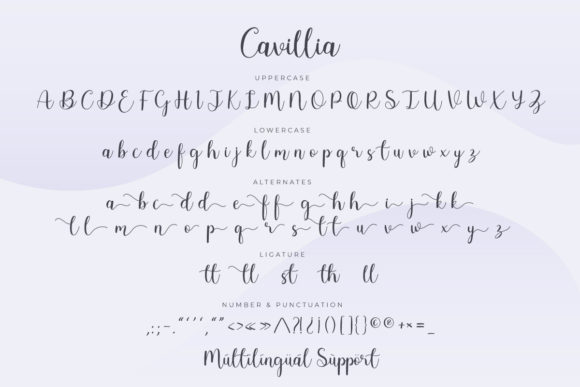 Cavillia
UPPERCASE
A B C D E F G H I J K L M N O P Q R S T U V W X Y Z
LOWERCASE
a b c d e f g h i j k l m n o p q r s t u v w x y z
ALTERNATES
a b c d d e f f g h h i j k k
l l m n o p q r s t u v w x y z
LIGATURE
tt tl st th ll
NUMBER & PUNCTUATION
,:;-."“‘’‚“”<>«»/\?!¿¡()[]{}©®+×=_
Múltilíngüãl Sùppört